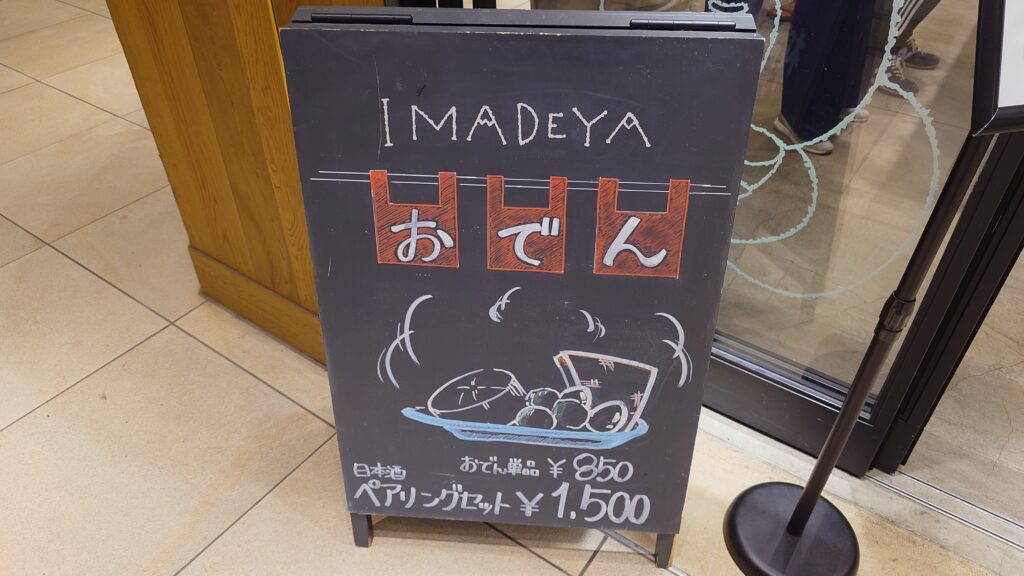 IMADEYA
おでん
おでん単品 ¥850
日本酒
ペアリングセット ¥1,500